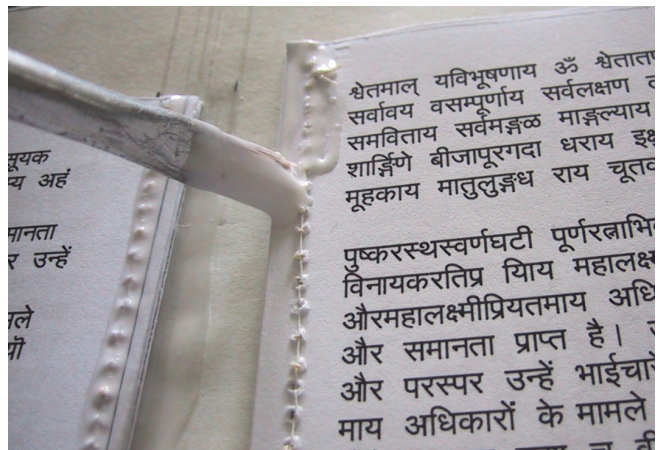 सूयक
य अहं
मानता
र उन्हें
मले
श्वेतमाल् यविभूषणाय ॐ श्वेतातप
सर्वावय वसम्पूर्णाय सर्वलक्षण
समविताय सर्वमङ्गळ माङ्गल्याय
शार्ङ्गिणे बीजापूरगदा धराय इक्षु
मूहकाय मातुलुङ्गध राय चूतक
पुष्करस्थस्वर्णघटी पूर्णरत्नाभि
विनायकरतिप्र यािय महालक्ष्म
औरमहालक्ष्मीप्रियतमाय अधि
और समानता प्राप्त है।
और परस्पर उन्हें भाईचारे
माय अधिकारों के मामले